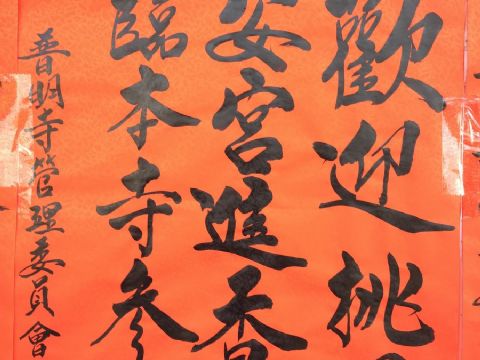 歡迎桃
安宮進香
臨本寺參
普明寺管理委員會